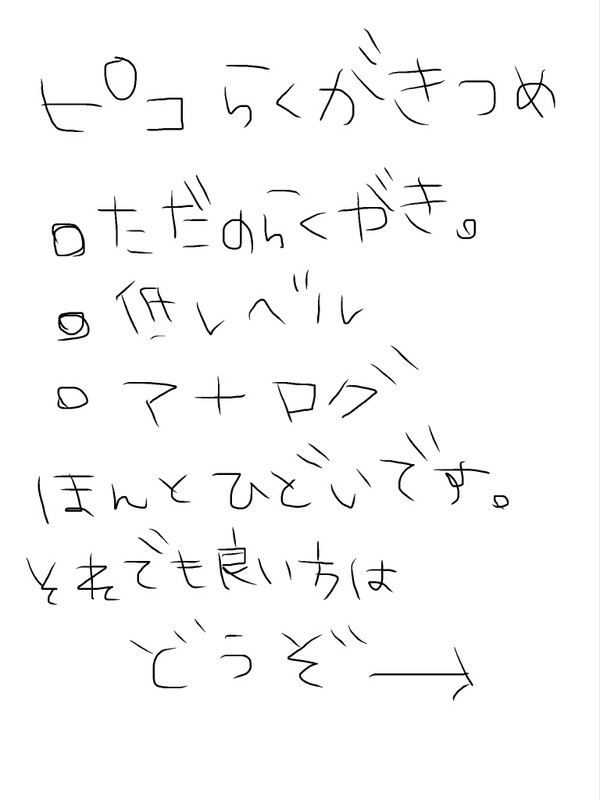 ピコ らくがきつめ
▫ただのらくがき。
▫低レベル
▫アナログ
ほんとひどいです。
それでも良い方は
どうぞ→